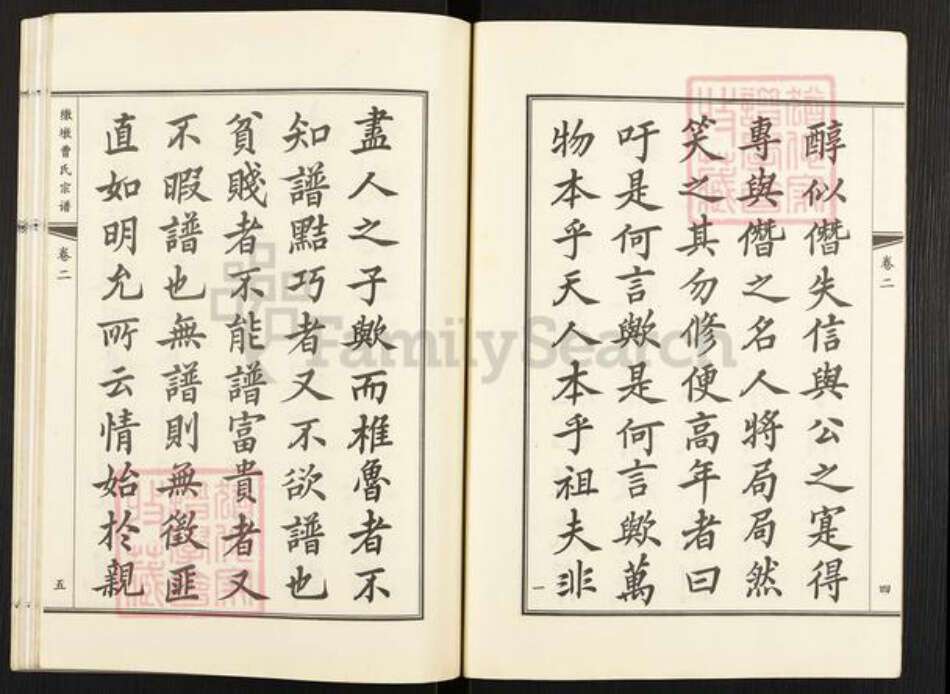 卷二
四
醇似僭失信與公之寔得
專與僭之名人將局局然
笑之其勿修便高年者曰
吁是何言歟是何言歟萬
物本乎天人本乎祖夫非
一
盡人之子歟而椎魯者不
知譜點巧者又不欲譜也
貧賤者不能譜富貴者又
不暇譜也無譜則無徵匪
直如明允所云情始於親
墩曹氏宗谱
卷二
五
FamilySearch